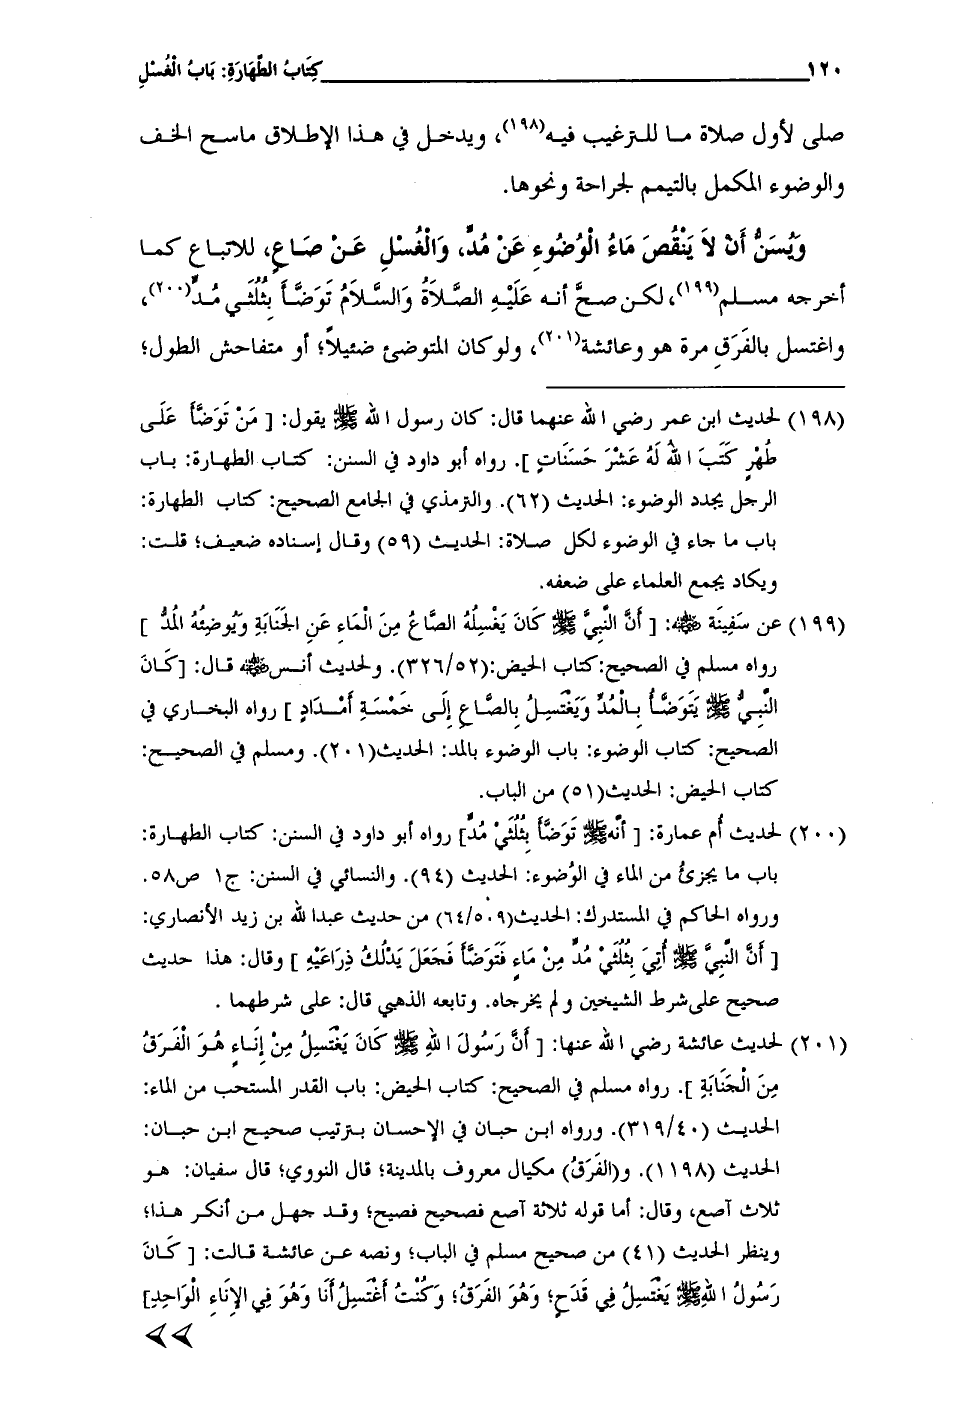 ١٢٠ كِتَابُ الطَّهَارَةِ: بَابُ الْغُسْلِ
صلى لأول صلاة ما للترغيب فيه(١٩٨)، ويدخل في هذا الإطلاق ماسح الخف
والوضوء المكمل بالتيمم لجراحة ونحوها.
وَيُسَنُّ أَنْ لاَ يَنْقُصَ مَاءُ الْوُضُوءِ عَنْ مُدٍّ، وَالْغُسْلِ عَنْ صَاعٍ، للاتباع كما
أخرجه مسلم(١٩٩)، لكن صحَّ أنه عَلَيْهِ الصَّلاَةُ وَالسَّلاَمُ تَوَضَّأَ بِثُلُثَي مُدٍّ(٢٠٠)،
واغتسل بالفَرَقِ مرة هو وعائشة(٢٠١)، ولو كان المتوضئ ضئيلاً؛ أو متفاحش الطول؛
(١٩٨) لحديث ابن عمر رضي الله عنهما قال: كان رسول الله ﷺ يقول: [ مَنْ تَوَضَّأَ عَلَى
طُهْرٍ كَتَبَ اللهُ لَهُ عَشْرَ حَسَنَاتٍ ]. رواه أبو داود في السنن: كتاب الطهارة: باب
الرجل يجدد الوضوء: الحديث (٦٢). والترمذي في الجامع الصحيح: كتاب الطهارة:
باب ما جاء في الوضوء لكل صلاة: الحديث (٥٩) وقال إسناده ضعيف؛ قلت:
ويكاد يجمع العلماء على ضعفه.
(١٩٩) عن سَفِينَة ﷺ: [ أَنَّ النَّبِيَّ ﷺ كَانَ يَغْسِلُهُ الصَّاعُ مِنَ الْمَاءِ عَنِ الجَنَابَةِ وَيُوضِئُهُ المُدُّ ]
رواه مسلم في الصحيح:كتاب الحيض:(٣٢٦/٥٢). ولحديث أنس قال: [كَانَ
النَّبِيُّ ﷺ يَتَوَضَّأُ بِالْمُدِّ وَيَغْتَسِلُ بِالصَّاعِ إِلَى خَمْسَةِ أَمْدَادٍ ] رواه البخاري في
الصحيح: كتاب الوضوء: باب الوضوء بالمد: الحديث(٢٠١). ومسلم في الصحيح:
كتاب الحيض: الحديث(٥١) من الباب.
(٢٠٠) لحديث أُم عمارة: [ أَنَّهُ ﷺ تَوَضَّأَ بِثُلُثَيْ مُدٍّ] رواه أبو داود في السنن: كتاب الطهارة:
باب ما يجزئُ من الماء في الوُضوء: الحديث (٩٤). والنسائي في السنن: ج١ ص٥٨.
ورواه الحاكم في المستدرك: الحديث(٦٤/٥٠٩) من حديث عبدالله بن زيد الأنصاري:
[ أَنَّ النَّبِيَّ ﷺ أُتِيَ بِثُلُثَيْ مُدٍّ مِنْ مَاءٍ فَتَوَضَّأَ فَجَعَلَ يَدْلُكُ ذِرَاعَيْهِ ] وقال: هذا حديث
صحيح على شرط الشيخين ولم يخرجاه. وتابعه الذهبي قال: على شرطهما .
(٢٠١) لحديث عائشة رضي الله عنها: [ أَنَّ رَسُولَ اللهِ ﷺ كَانَ يَغْتَسِلُ مِنْ إِنَاءٍ هُوَ الْفَرَقُ
مِنَ الْجَنَابَةِ ]. رواه مسلم في الصحيح: كتاب الحيض: باب القدر المستحب من الماء:
الحديث (٣١٩/٤٠). ورواه ابن حبان في الإحسان بترتيب صحيح ابن حبان:
الحديث (١١٩٨). و(الفَرَقُ) مكيال معروف بالمدينة؛ قال النووي؛ قال سفيان: هو
ثلاث آصع، وقال: أما قوله ثلاثة آصع فصحيح فصيح؛ وقد جهل من أنكر هذا؛
وينظر الحديث (٤١) من صحيح مسلم في الباب؛ ونصه عن عائشة قالت: [ كَانَ
رَسُولُ اللهِ ﷺ يَغْتَسِلُ فِي قَدَحٍ؛ وَهُوَ الفَرَقُ؛ وَكُنْتُ أَغْتَسِلُ أَنَا وَهُوَ فِي الإِنَاءِ الْوَاحِدِ]